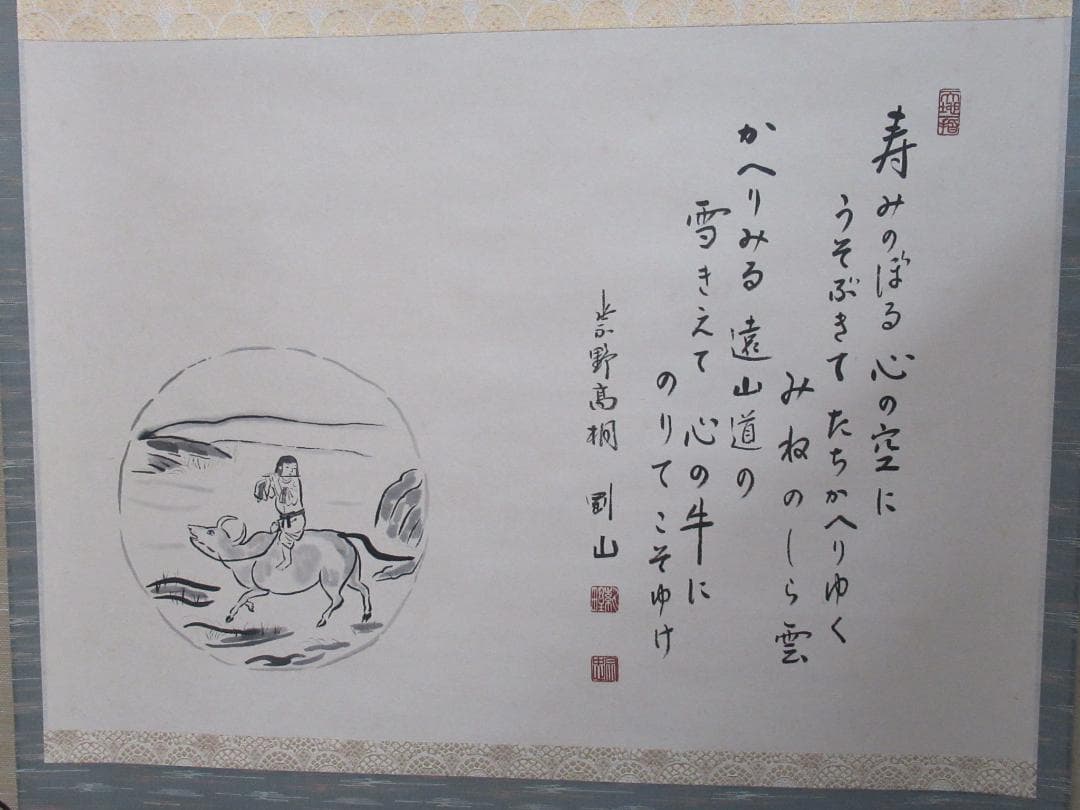 寿みのぼる心の空に
うそぶきてたちかへりゆく
みねのしら雲
かへりみる遠山道の
雪きえて心の牛に
のりてこそゆけ
紫野高桐 剛山